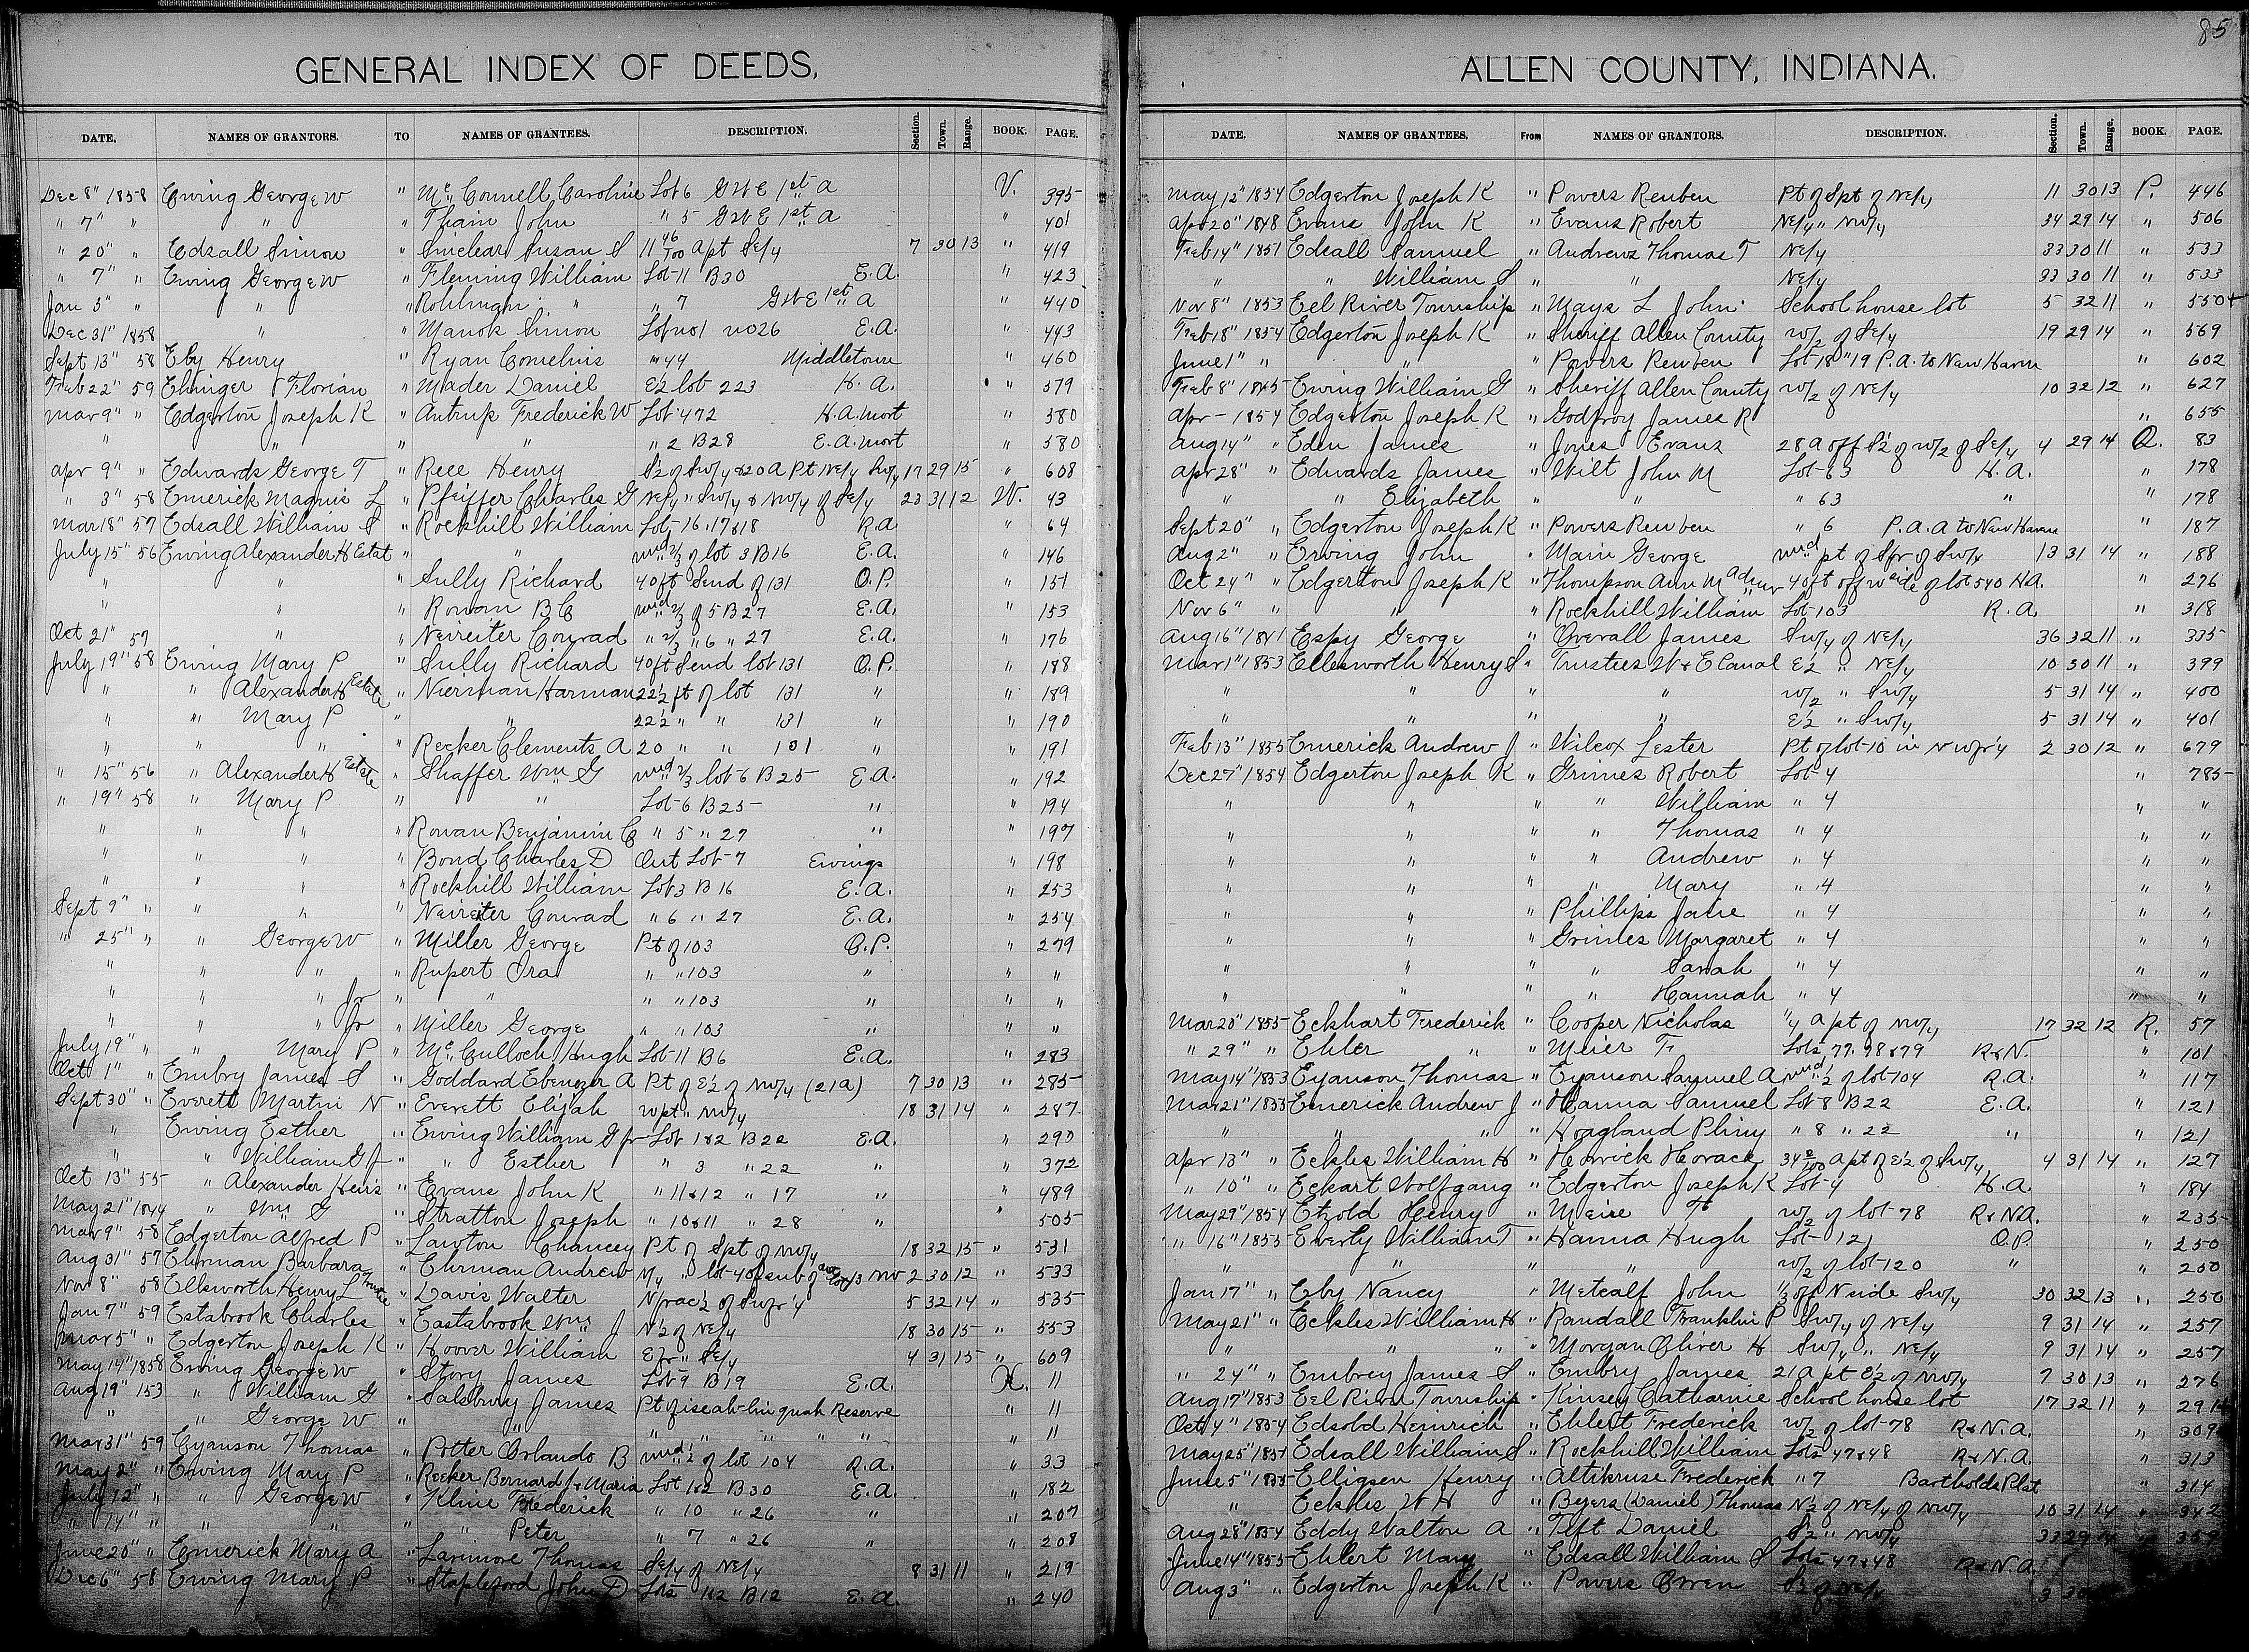 85
GENERAL INDEX OF DEEDS,
DATE. NAMES OF GRANTORS. TO NAMES OF GRANTEES. DESCRIPTION. Section. Town. Range. BOOK. PAGE.
Dec 8" 1858 Ewing George W " Mc Connell Caroline Lot 6 GWE 1st a V. 395
" 7" " " " Thain John " 5 GWE 1st a " 401
" 20" " Edsall Simon " Sinclear Susan S 11 46/100 a pt Se/4 7 30 13 " 419
" 7" " Ewing George W " Fleming William Lot 11 B30 E.A. " 423
Jan 5" " " " Rohlman " " 7 GWE 1st a " 440
Dec 31" 1858 " " Manok Simon Lot no 1 no 26 E.A. " 443
Sept 13" 58 Eby Henry " Ryan Cornelius " 44 Middletown " 460
Feb 22" 59 Ehinger Florian " Mader Daniel E½ lot 223 H.A. " 579
Mar 9" " Edgerton Joseph K " Antrup Frederick W Lot 472 H.A. mort " 580
" " " " " 2 B28 E.A. mort " 580
Apr 9" " Edwards George T " Rece Henry S½ of Sw/4 & 20 A Pt Ne/4 Sw/4 17 29 15 " 608
" 3" 58 Emerick Magnie L " Pfeiffer Charles G Ne/4 " Sw/4 & Nw/4 of Se/4 23 31 12 W. 43
Mar 18" 57 Edsall William S " Rockhill William Lots 16.17&18 R.A " 64
July 15" 56 Ewing Alexander H Estat " " und ⅔ of lot 3 B16 E.A. " 146
" " " Sully Richard 40 ft S end of 131 O.P. " 151
" " " Rowan B C und ⅔ of 5 B27 E.A. " 153
Oct 21" 57 " " Neireiter Conrad " ⅔ " 6 " 27 E.A. " 176
July 19" 58 Ewing Mary P " Sully Richard 40 ft S end lot 131 O.P. " 188
" " Alexander H Estate " Nierman Harman 22½ ft of lot 131 " " 189
" " Mary P " " 22½ " " 131 " " 190
" " " " Recker Clements A 20 " " 131 " " 191
" 15" 56 " Alexander H Estate " Shaffer Wm G und ⅔ lot 6 B25 E.A. " 192
" 19" 58 " Mary P " " Lot 6 B25 " " 194
" " " " Rowan Benjamin C " 5 " 27 " " 197
" " " " Bond Charles D Out Lot 7 Ewings " 198
" " " " Rockhill William Lot 3 B16 E.A. " 253
Sept 9" " " " " Neireiter Conrad " 6 " 27 E.A. " 254
" 25" " " George W " Miller George Pt of 103 O.P. " 279
" " " " Rupert Ora " " 103 " " "
" " " Jr " " " " 103 " " "
" " " Jr " Miller George " " 103 " " "
July 19" " " Mary P " Mc Culloch Hugh Lot 11 B6 E.A. " 283
Oct 1" " Embry James S " Goddard Ebenezer A Pt of E½ of Nw/4 (21a) 7 30 13 " 285
Sept 30" " Everett Martin N " Everett Elijah W pt " Nw/4 18 31 14 " 287
" Ewing Esther " Ewing William G Jr Lot 1&2 B22 E.A. " 290
" " William G Jr " " Esther " 3 " 22 " " 372
Oct 13" 55 " Alexander Heirs " Evans John K " 11&12 " 17 " " 489
May 21" 1844 " Wm G " Stratton Joseph " 10&11 " 28 " " 505
Mar 9" 58 Edgerton Alfred P " Lawton Chancey Pt of Spt of Nw/4 18 32 15 " 531
Aug 31" 57 Ehrman Barbara " Ehrman Andrew N/4 " lot 4 of sub of out lot 13 Nw 2 30 12 " 533
Nov 8" 58 Ellsworth Henry L Trustee " Davis Walter N frac ½ of Sw fr ¼ 5 32 14 " 535
Jan 7" 59 Estabrook Charles " Eastabrook Wm J N½ of Ne/4 18 30 15 " 553
Mar 5" " Edgerton Joseph K " Hoover William E fr " Se/4 4 31 15 " 609
May 14" 1858 Ewing George W " Story James Lot 9 B19 E.A. X. 11
Aug 19" 153 " William G " Salsbury James Pt of iseah-lin quah Reserve " 11
" " George W " " " " " " " " 11
Mar 31" 59 Eyanson Thomas " Potter Orlando B und ½ of lot 104 R.A. " 33
May 2" " Ewing Mary P " Recker Bernard Jr & Maria Lot 1&2 B30 E.A. " 182
July 12" " " George W " Kline Frederick " 10 " 26 " " 207
" 14" " " " " " Peter " 7 " 26 " " 208
June 20" " Emerick Mary A " Larimore Thomas Se/4 of Ne/4 8 31 11 " 219
Dec 6" 58 Ewing Mary P " Stapleford John D Lots 1&2 B12 E.A. " 240
ALLEN COUNTY, INDIANA.
DATE. NAMES OF GRANTEES. From NAMES OF GRANTORS. DESCRIPTION. Section. Town. Range. BOOK. PAGE.
May 12" 1854 Edgerton Joseph K " Powers Reuben Pt of Spt of Ne/4 11 30 13 P. 446
Apr 20" 1848 Evans John K " Evans Robert Ne/4 " Nw/4 34 29 14 " 506
Feb 14" 1851 Edsall Samuel " Andrews Thomas T Ne/4 33 30 11 " 533
" " William S " " Ne/4 33 30 11 " 533
Nov 8" 1853 Eel River Township " Mays L John School house lot 5 32 11 " 550 +
Feb 18" 1854 Edgerton Joseph K " Sheriff Allen County W/2 of Se/4 19 29 14 " 569
June 1" " " " Powers Reuben Lot 18 " 19 P.A. to New Haven " 602
Feb 8" 1845 Ewing William G " Sheriff Allen County W/2 of Ne/4 10 32 12 " 627
Apr – 1854 Edgerton Joseph K " Godfroy James R " 655
Aug 14" " Eden James " Jones Evans 28 a off S½ of W/2 of Se/4 4 29 14 Q. 83
Apr 28" " Edwards James " Wilt John M Lot 63 H.A. " 178
" " Elizabeth " " " 63 " " 178
Sept 20" " Edgerton Joseph K " Powers Reuben " 6 P.A. A to New Haven " 187
Aug 2" " Erving John " Main George und pt of S fr of Sw/4 13 31 14 " 188
Oct 24" " Edgerton Joseph K " Thompson Ann M Admr 40 ft off W side of lot 540 H.A. " 276
Nov 6" " " " Rockhill William Lot 103 R.A. " 318
Aug 16" 1841 Espy George " Overall James Sw/4 of Ne/4 36 32 11 " 335
Mar 1" 1853 Ellesworth Henry S " Trustees W & E Canal E½ " Ne/4 10 30 11 " 399
" " " " W/2 " Sw/4 5 31 14 " 400
" " " " E½ " Sw/4 5 31 14 " 401
Feb 13" 1855 Emerick Andrew J " Wilcox Lester Pt of lot 10 in N W fr ¼ 2 30 12 " 679
Dec 27" 1854 Edgerton Joseph K " Grimes Robert Lot 4 " 785
" " " " William " 4 " "
" " " " Thomas " 4 " "
" " " " Andrew " 4 " "
" " " " Mary " 4 " "
" " " Phillips Jane " 4 " "
" " " Grimes Margaret " 4 " "
" " " " Sarah " 4 " "
" " " " Hannah " 4 " "
Mar 20" 1855 Eckhart Frederick " Cooper Nicholas ¼ a pt of Nw/4 17 32 12 R. 57
" 29" " Ehler " " Meier F Lots 77.78&79 R&N. " 101
May 14" 1853 Eyanson Thomas " Eyanson Samuel A und ½ of lot 104 R.A. " 117
Mar 21" 1855 Emerick Andrew J " Hanna Samuel Lot 8 B22 E.A. " 121
" " " " Hoagland Pliny " 8 " 22 " " 121
Apr 13" " Eckles William H " Herrick Horace a pt of E½ of Sw/4 4 31 14 " 127
" 10" " Eckart Wolfgang " Edgerton Joseph K Lot 4 H.A. " 184
May 29" 1854 Etzold Henry " Meire W/2 of lot 78 R&NA. " 235
" 16" 1855 Everly William T " Hanna Hugh Lot 121 O.P. " 250
" " " " W/2 of lot 120 " " 250
Jan 17" " Eby Nancy " Metcalf John ⅓ off N side Sw/4 30 32 13 " 256
May 21" " Eckles William H " Randall Franklin P Sw/4 of Ne/4 9 31 14 " 257
" " " " Morgan Oliver H Sw/4 " Ne/4 9 31 14 " 257
" 24" " Embrey James S " Embry James 21 A pt E½ of Nw/4 7 30 13 " 276
Aug 17" 1853 Eel River Township " Kinsey Catharine School house lot 17 32 11 " 291
Oct 4" 1854 Edsold Heinrich " Ehlert Frederick W/2 of lot 78 R&N.A. " 309
May 25" 1851 Edsall William S " Rockhill William Lots 47&48 R&N.A. " 313
June 5" 1855 Elligsen Henry " Altekruse Frederick " 7 Bartholds Plat " 314
" Eckles W H " Beyers (Daniel) Thomas N½ of Ne/4 of Nw/4 10 31 14 " 342
Aug 28" 1854 Eddy Walton A " Teft Daniel S½ " Nw/4 33 29 14 "
June 14" 1855 Ehlert Mary " Edsall William S Lots 47&48 R&N.A.
Aug 3" " Edgerton Joseph K " Powers Owen S½ of Ne/4 3 30